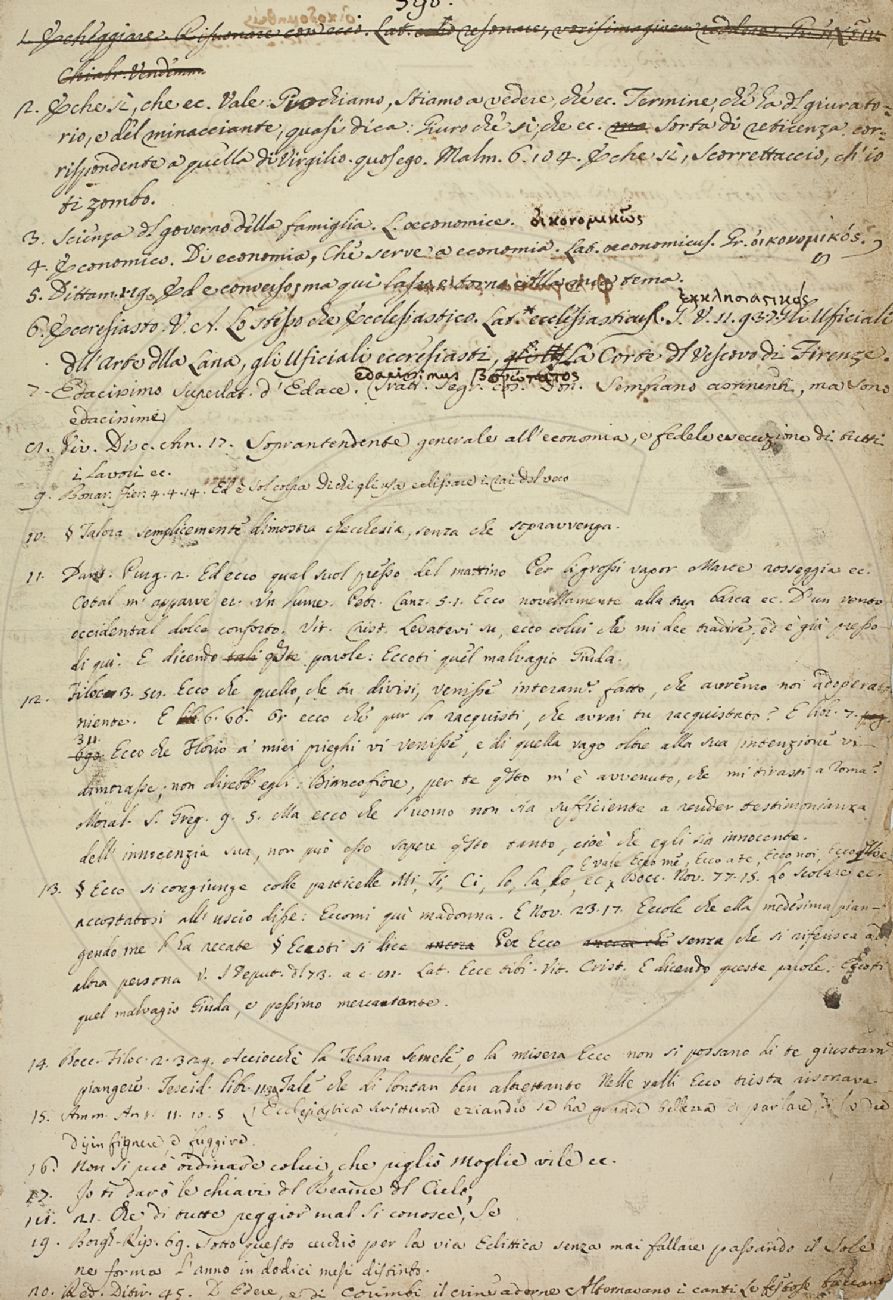 590.
1. Echeggiare. Risonare con eco. Lat. resonare, vocis imaginem reddere. Gr.
Chiabr. Vendemm.
2. E che sì, che ec. Vale Giuochiamo, Stiamo a vedere, che ec. Termine, che ha del giurato-
rio, e del minacciante, quasi dica: Giuro che sì, che ec. Sorta di reticenza cor-
rispondente a quella di Virgilio. quos ego. Malm. 6. 104. E che sì, scorrettaccio, ch'io
ti zombo.
3. Scienza del governo della famiglia. L. oeconomice. οἰκονομικῶς
4. Economico. Di economia, Che serve a economia. Lat. oeconomicus. Gr. οἰκονομικός.
5. Dittam. 1. 29. Ed e converso, ma qui tema.
ἐκκλησιαστικός
6. Eccresiasto. V. A. Lo stesso che Ecclesiastico. Lat. ecclesiasticus. G. V. 11. 93. 7. Gli Uficiali
dell'Arte della Lana, gli Uficiali eccresiasti, la Corte del Vescovo di Firenze.
edacissimus βορώτατος
7. Edacissimo Superlat. d'Edace. Tratt. Segr. cos. don. Sembrano astinenti, ma sono
edacissimi
8. Viv. Disc. Arn. 17. Soprantendente generale all'economia, e fedele esecuzione di tutti
i lavori ec.
9. Bonar. Fier. 4. 4. 14. Ed è sol colpa di chi gli usa eclissare i rai del vero
10. § Talora semplicemente dimostra checchesia, senza che sopravvenga.
11. Dant. Purg. 2. Ed ecco qual suol presso del mattino Per li grossi vapor Marte rosseggia ec.
Cotal m'apparve ec. Un lume. Petr. Canz. 5. 1. Ecco novellamente alla tua barca ec. D'un vento
occidental dolce conforto. Vit. Crist. Levatevi su, ecco colui che mi dee tradire, ed è già presso
di qui. E dicendo tali queste parole: Eccoti quel malvagio Giuda.
12. Filoc. 3. 51. Ecco che quello, che tu divisi, venisse interam. fatto, che avremo noi adoperato
niente. E lib. 6. 60. Or ecco che pur la racquisti, che avrai tu racquistato? E lib. 7.
311. Ecco che Florio a' miei prieghi vi venisse, e di quella vago oltre alla sua intenzione vi
dimorasse; non direbb'egli: Biancofiore, per te questo m'è avvenuto, che mi tirasti a Roma?
Moral. S. Greg. 9. 5. Ma ecco che l'uomo non sia sufficiente a render testimonianza
dell'innocenzia sua, non può esso sapere questo tanto, cioè che egli sia innocente.
E vale Ecco me, Ecco a te, Ecco noi, Ecco
13. § Ecco si congiunge colle particelle Mi, Ti, Ci, lo, la, le, ec. Bocc. Nov. 77. 15. Lo scolare ec.
accostatosi all'uscio disse: Eccomi qui madonna. E Nov. 23. 17. Eccole che ella medesima pian-
gendo me l'ha recate § Eccoti si dice ancora Per Ecco ancora che senza che si riferisca ad
altra persona V. i Deput. del 73. a c. Lat. Ecce tibi. Vit. Crist. E dicendo queste parole: Eccoti
quel malvagio Giuda, e pessimo mercatante.
14. Bocc. Filoc. 2. 329. Acciocchè la Tebana Semelè, o la misera Ecco non si possano di te giustam.
piangere. Teseid. libr. 11. Tale che di lontan ben altrettanto Nelle valli Ecco trista risonava
15. Amm. Ant. 11. 10. 5 Ecclesiastica Scrittura eziandio se ha grande bellezza di parlare, si lo dee
disinfignere, e fuggire.
16. Non si può ordinare colui, che pigliò Moglie vile ec.
17. Io ti darò le chiavi del Reame del Cielo,
18. 21. Che di tutte peggior mal si conosce, Se
19. Borgh. Rip. 69. Sotto questo cerchio per la via Eclittica senza mai fallare passando il Sole
ne forma l'anno in dodici mesi distinto.
20. Red. Ditir. 45. D'Edere, e di Corimbi il crine adorne Alternavano i canti Le festose baccanti